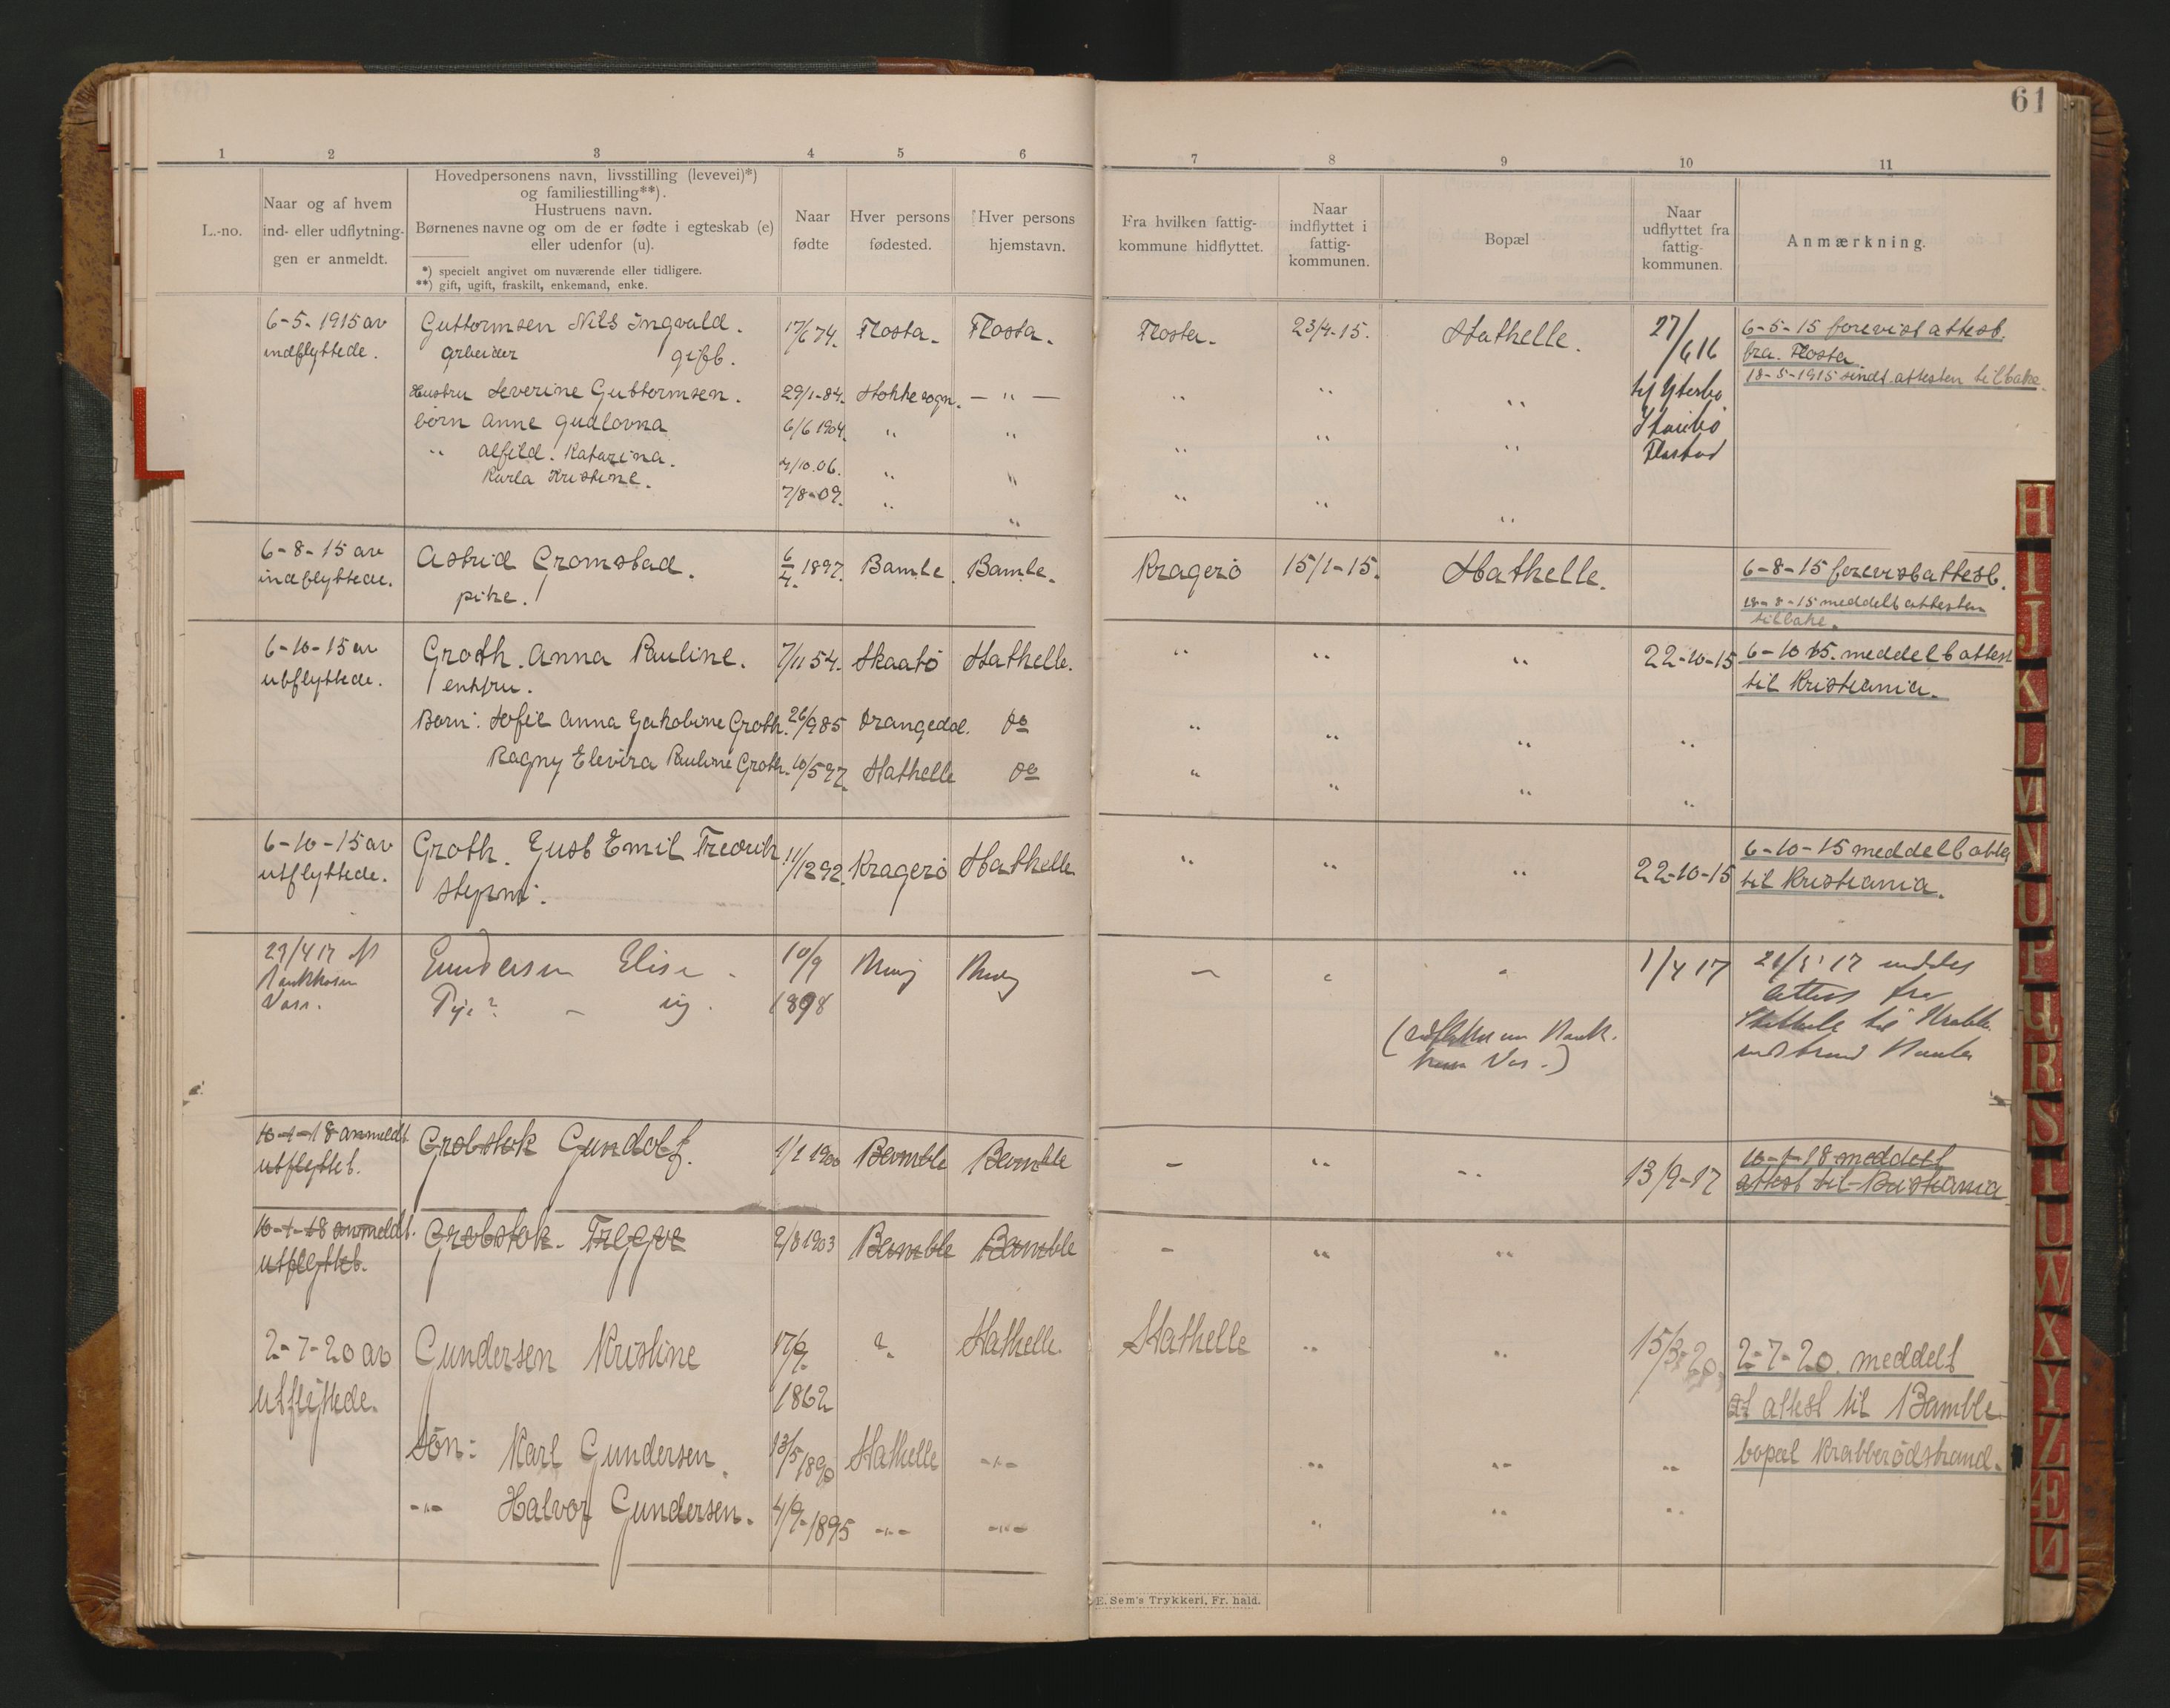 61
1 2 3 4 5 6 7 8 9 10 11
L.-no.
Naar og af hvem
ind- eller udflytnin-
gen er anmeldt.
Hovedpersonens navn, livsstilling (levevei)*)
og familiestilling**).
Hustruens navn.
Børnenes navne og om de er fødte i egteskab (e)
eller udenfor (u).
*) specielt angivet om nuværende eller tidligere.
**) gift, ugift, fraskilt, enkemand, enke.
Naar
fødte
Hver persons
fødested.
Hver persons
hjemstavn.
Fra hvilken fattig-
kommune hidflyttet.
Naar
indflyttet i
fattig-
kommunen.
Bopæl
Naar
udflyttet fra
fattig-
kommunen.
Anmærkning.
6-5-1915 av Guttormsen Nils Ingvald. 17/6 74. Flosta. Flosta. Flosta. 23/4-15. Stathelle. 27/6 16 6-5-15 forevist attest.
indflyttede. Arbeider gift. fra. Flosta
18-5-1915 sendt attesten tilbake.
Hustru Severine Guttormsen. 29/1-84. Stokke sogn. — " — " " " til Ytterbø
børn Anne Gudlovna 6/6 1904. " " " " "
" Alfild. Katarina. 4/10.06. " " Flostad
Karla Kristine. 7/8-09. " " " " "
6-8-15 av Astrid Gromstad. 6/4. 1897. Bamle. Bamle. Kragerø 15/1-15. Stathelle. 6-8-15 forevist attest.
indflyttede. pike. 18-8-15 meddelt attesten
tilbake.
6-10-15 av Groth. Anna Pauline. 7/11 54. Skaatö Stathelle. " " " 22-10-15 6-10 15. meddelt attest
utflyttede. enkfru. til Kristiania.
Barn: Sofie Anna Jakobine Groth. 26/9 85 Drangedal. do " " " "
Ragny Elevira Pauline Groth. 10/5 97. Stathelle do " " " "
6-10-15 av Groth. Gust Emil Fredrik 11/12 92. Kragerö Stathelle " " " 22-10-15 6-10-15 meddelt attes
utflyttede. til Kristiania.
23/4 17 Gundersen Elise - 10/9 1/4 17
1898
10-1-18 anmeldt Grobstok Gundolf. 1/1 1900 Bamble Bamble - " " 13/9-17 10-1-18 meddelt
utflyttet. attest til Kristiania
10-1-18 anmeldt. Grobstok. Trygve 2/8 1903 Bamble Bamble - " "
utflyttet.
2-7-20 av Gundersen Kristine 17/9. ? Stathelle. Stathelle " " 15/3-20. 2-7-20. meddelt
utflyttede. 1862 at attest til Bamble
Søn: Karl Gundersen 13/5 1890 Stathelle -"- " " " bopæl Krabberødstrand.
-"- Halvor Gundersen. 4/9-1895 -"- -"- " " "
E. Sem's Trykkeri, Fr. hald.
H
I
J
K
L
M
N
O
P
Q
R
S
T
U
W
X
Y
Z
Æ
Ø